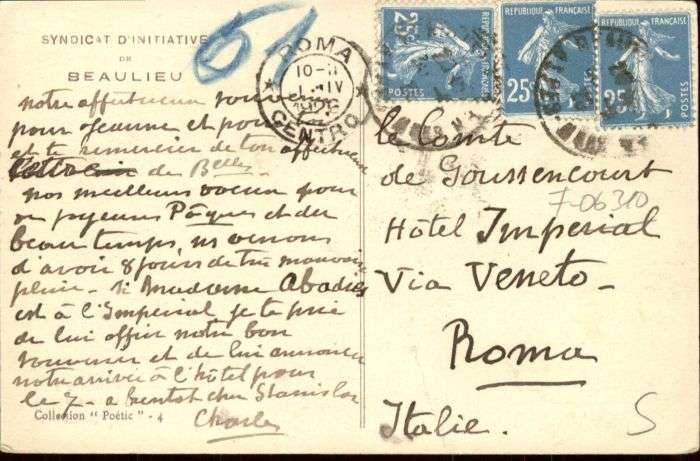 SYNDICAT D'INITIATIVE
DE
BEAULIEU
61
ROMA
10-11
IV
CENTRO
25c
POSTES
RÉPUBLIQUE FRANÇAISE
25c
POSTES
RÉPUBLIQUE FRANÇAISE
25
POSTES
notre affectueux
pour Jeanne et pour
et te remercier de ton affectueuse
lettre de Belles
nos meilleurs voeux pour
de joyeuses Pâques et du
beau temps, ns venons
d'avoir 8 jours de très mauvaise
pluie - Si Madame Abadie
est à l'Impérial je te prie
de lui offrir notre bon
souvenir et de lui annoncer
notre arrivée à l'hôtel pour
le 7 - à bientôt cher Stanislas
Charles
Collection "Poétic" - 4
le Comte
de Goussencourt
7-06310
Hôtel Imperial
Via Veneto -
Roma
Italie.
S